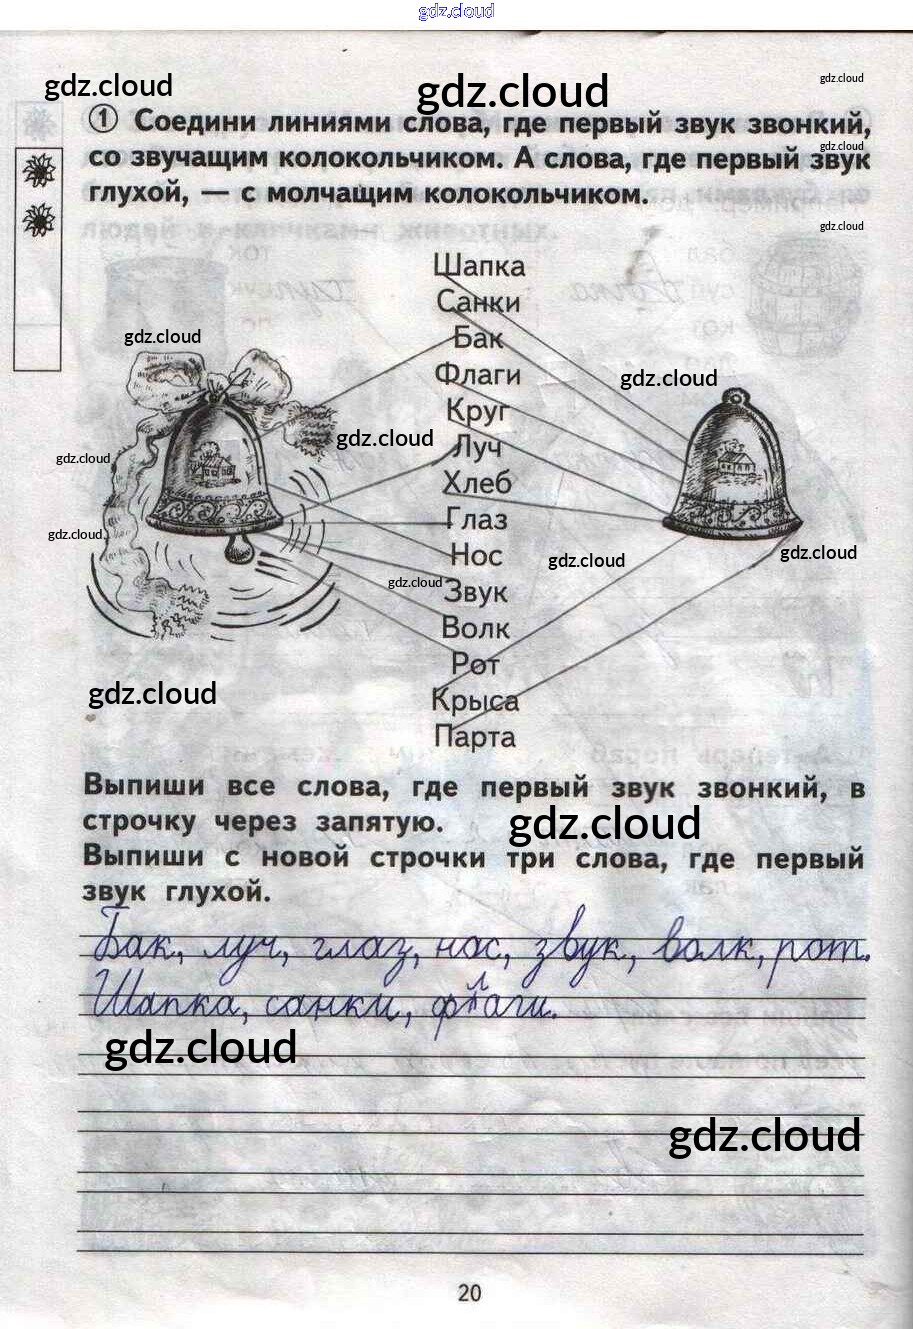 gdz.cloud
gdz.cloud gdz.cloud gdz.cloud
1 Соедини линиями слова, где первый звук звонкий,
gdz.cloud
со звучащим колокольчиком. А слова, где первый звук
глухой, — с молчащим колокольчиком.
gdz.cloud
Шапка
Санки
gdz.cloud
Бак
Флаги
gdz.cloud
Круг
gdz.cloud
Луч
gdz.cloud
Хлеб
Глаз
gdz.cloud
Нос
gdz.cloud
gdz.cloud
gdz.cloud
Звук
Волк
Рот
gdz.cloud
Крыса
Парта
Выпиши все слова, где первый звук звонкий, в
строчку через запятую.
gdz.cloud
Выпиши с новой строчки три слова, где первый
звук глухой.
Бак, луч, глаз, нос, звук, волк, рот.
Шапка, санки, флаги.
gdz.cloud
gdz.cloud
20